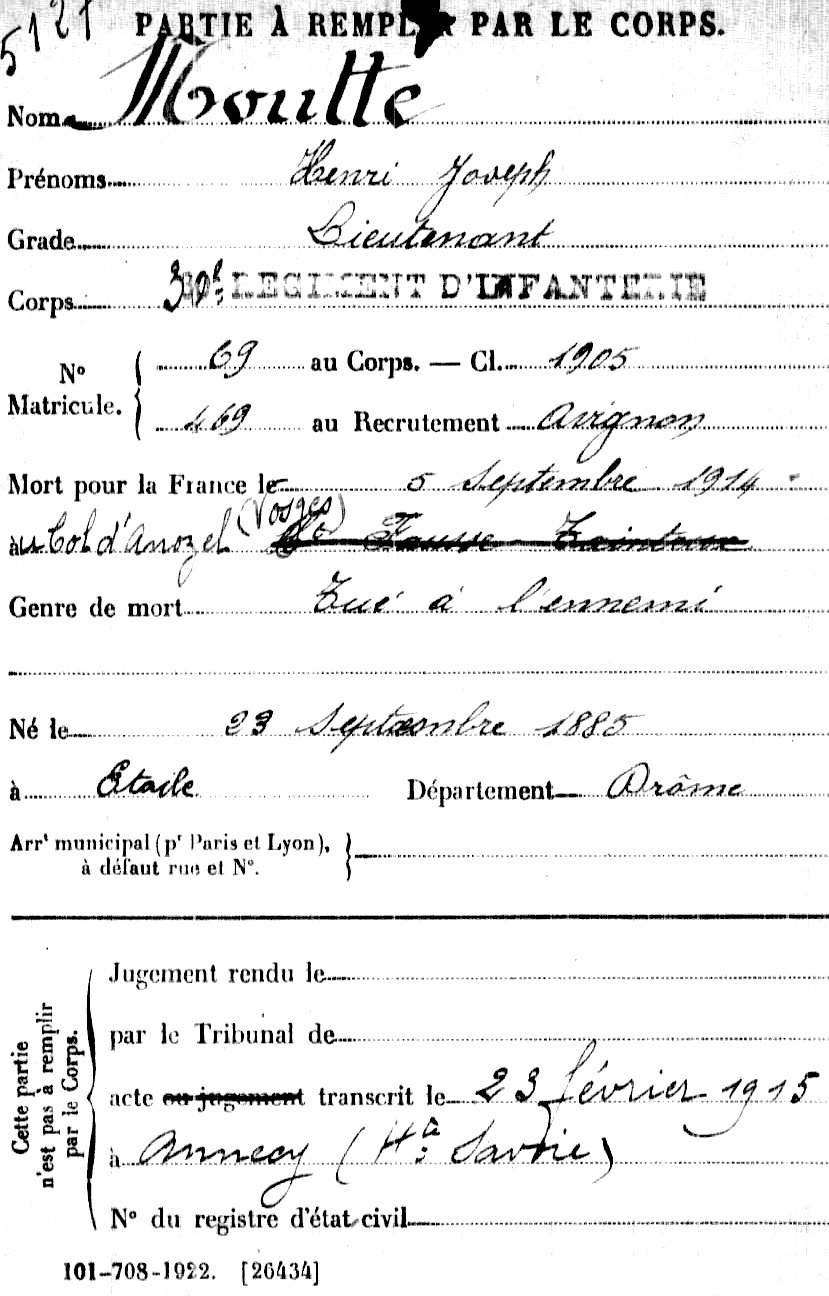 5121
PARTIE À REMPLIR PAR LE CORPS.
Nom Moutte
Prénoms Henri Joseph
Grade Lieutenant
Corps 30e REGIMENT D'INFANTERIE
No Matricule. { 69 au Corps. — Cl. 1905
469 au Recrutement Avignon
Mort pour la France le 5 Septembre 1914
(Vosges)
au Col d'Anozel
Genre de mort Tué à l'ennemi
Né le 23 Septembre 1885
à Etoile Département Drôme
Arrt municipal (pr Paris et Lyon),
à défaut rue et No.
Cette partie n'est pas à remplir par le Corps.
Jugement rendu le
par le Tribunal de
acte ou jugement transcrit le 23 février 1915
à Annecy (Hte Savoie)
No du registre d'état civil
101-708-1922. [26434]